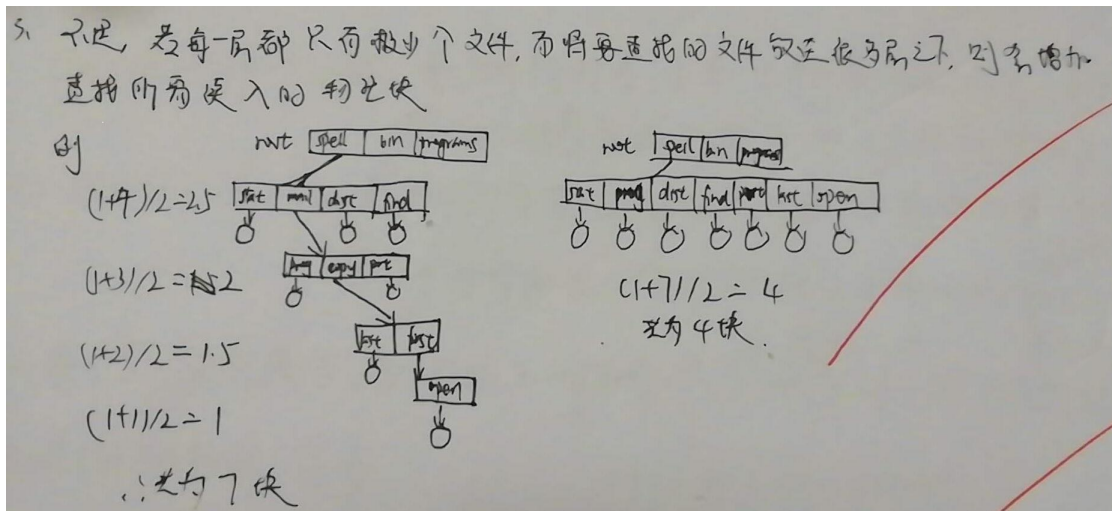 5. 不是, 若每一层都只有极少个文件, 而将要查找的文件放在很多层之下, 则会增加
查找所需读入的物理块
例
root spell bin programs
(1+4)/2=2.5 stat mail dist find
(1+3)/2=2 copy
(1+2)/2=1.5 list
(1+1)/2=1 open
∴共为7块
root spell bin programs
stat dist find list open
(1+7)/2=4
共为4块.